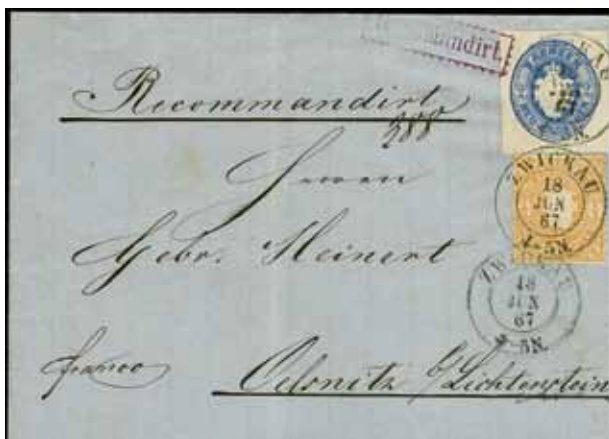 Recommandirt.
Recommandirt
288
Herren
Gebr. Meinert
franco
Oelsnitz b/Lichtenstein
ZWICKAU
18
JUN
67
4-5N.
ZWICKAU
18
JUN
67
4-5N.